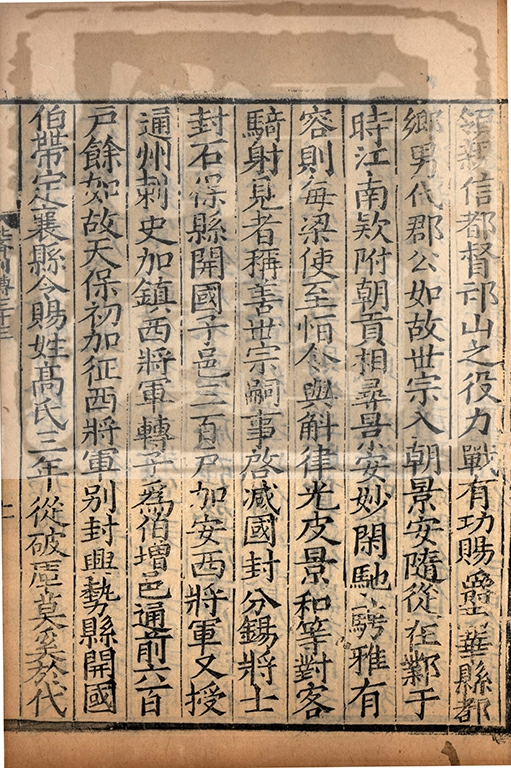 領親信都督邙山之役力戰有功賜爵西華縣都
鄉男代郡公如故世宗入朝景安隨從在鄴于
時江南欵附朝貢相尋景安妙閑馳騁雅有
容則每梁使至恒令與斛律光皮景和等對客
騎射見者稱善世宗嗣事啓减國封分錫將士
封石保縣開國子邑三百戸加安西將軍又授
通州刺史加鎮西將軍轉子爲伯增邑通前六百
戸餘如故天保初加征西將軍别封興勢縣開國
伯帶定襄縣令賜姓髙氏三年從破庫莫奚於代